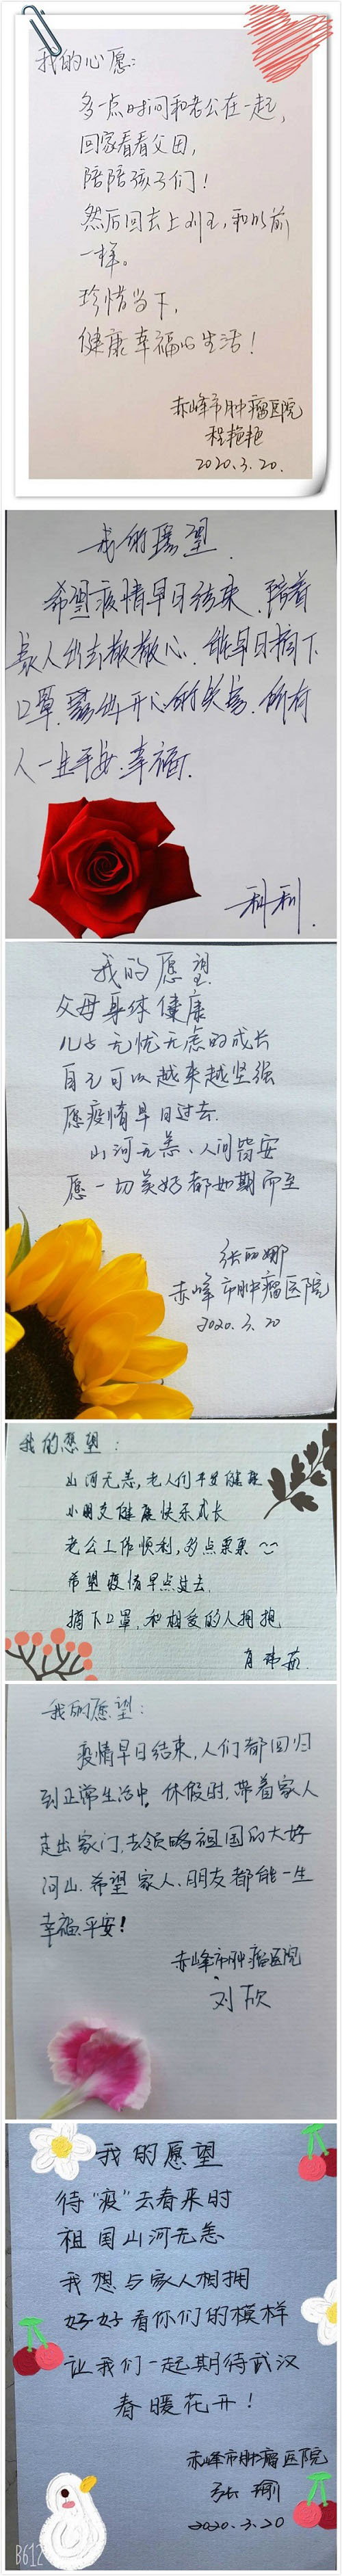 我的心愿：
多一点时间和老公在一起，
回家看看父母，
陪陪孩子们！
然后回去上班，和以前
一样。
珍惜当下，
健康幸福的生活！
赤峰市肿瘤医院
程艳艳
2020.3.20.
我的愿望
希望疫情早日结束，陪着
家人出去散散心，能早日摘下
口罩，露出开心的笑容，所有
人一生平安、幸福。
我的愿望
父母身体健康
儿子无忧无虑的成长
自己可以越来越坚强
愿疫情早日过去
山河无恙、人间皆安
愿一切美好都如期而至
张丽娜
赤峰市肿瘤医院
2020.3.20
我的愿望：
山河无恙，老人们平安健康
小朋友健康快乐成长
老公工作顺利，多点票票
希望疫情早点过去
摘下口罩，和相爱的人拥抱
我的愿望：
疫情早日结束，人们都回归
到正常生活中。休假时，带着家人
走出家门，去领略祖国的大好
河山。希望家人、朋友都能一生
幸福、平安！
赤峰市肿瘤医院
刘欣
我的愿望
待“疫”去春来时
祖国山河无恙
我想与家人相拥
好好看你们的模样
让我们一起期待武汉
春暖花开！
赤峰市肿瘤医院
张瑜
2020.3.20
B612